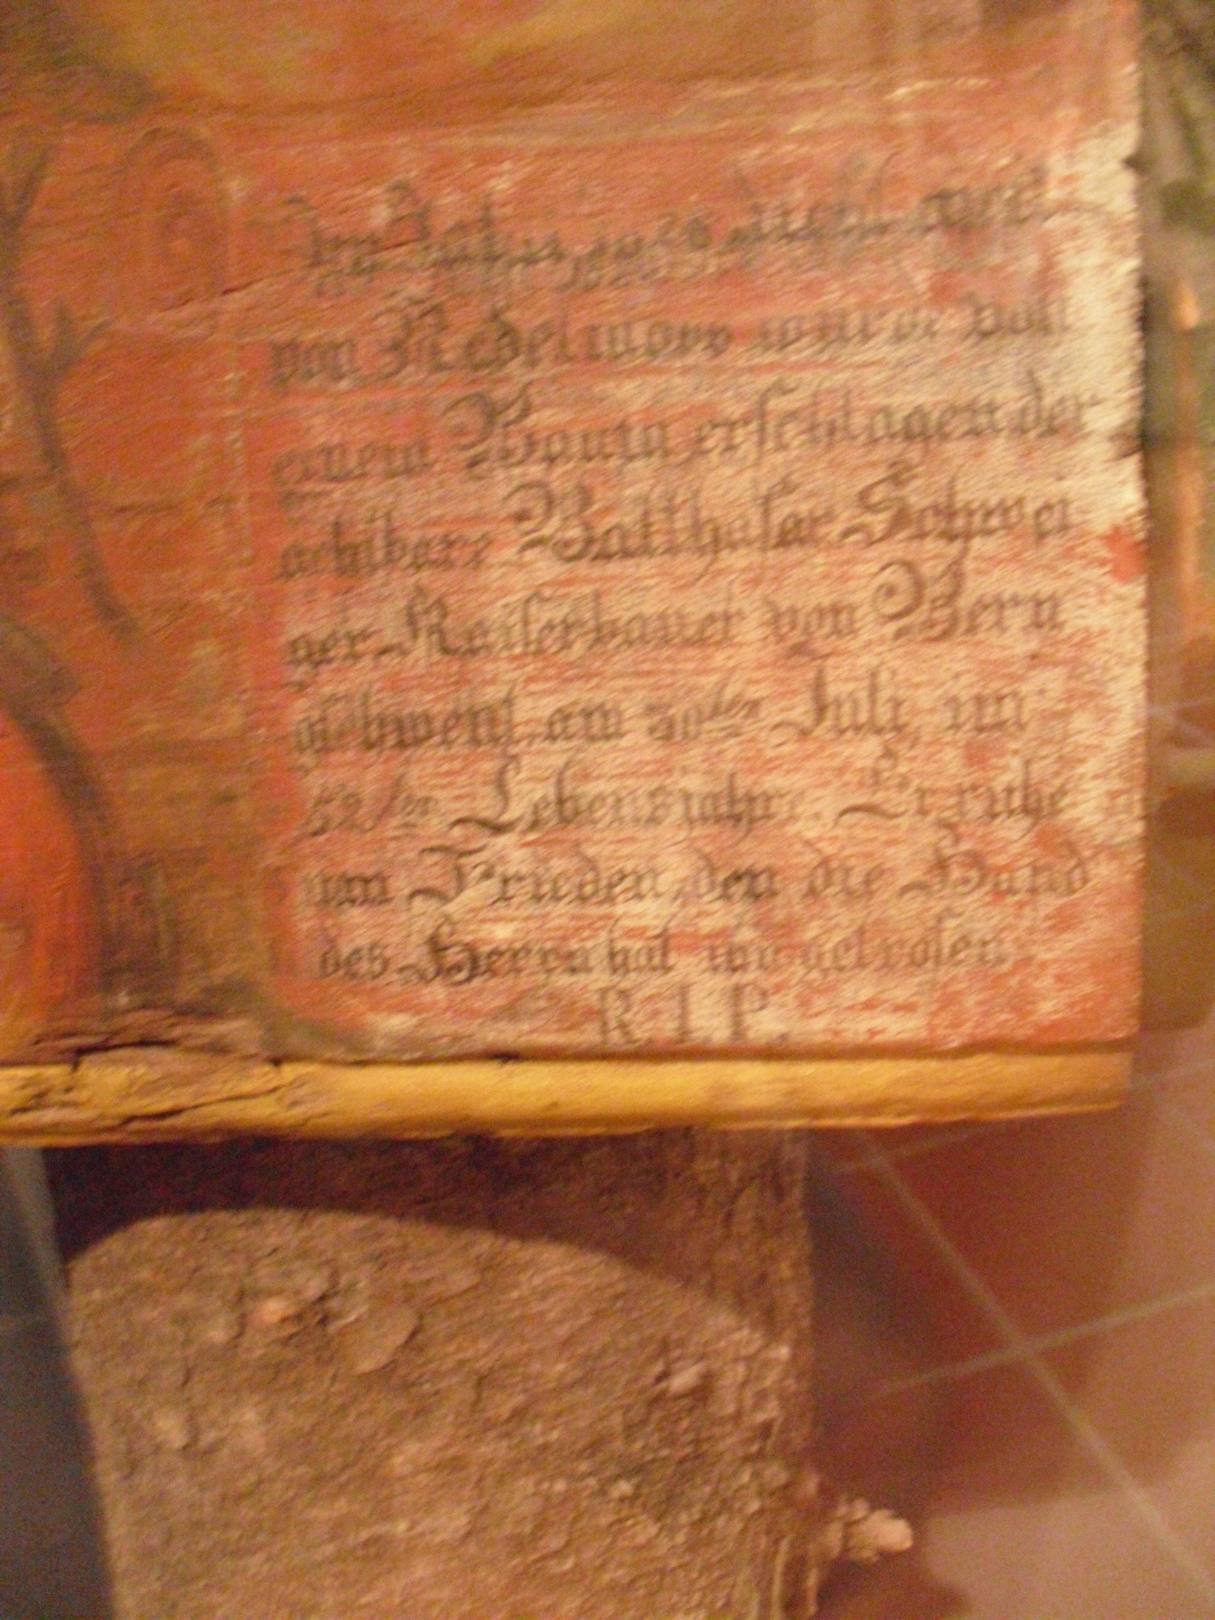 Im Jahre
von wurde von
einem Baum erschlagen der
achtbare Balthasar Schwei
ger Kaiserbauer von Bern
am 20ten Juli im
52ten Lebensjahre. Er ruhe
im Frieden, den die Hand
des Herrn hat ihn getrofen.
R.I.P.